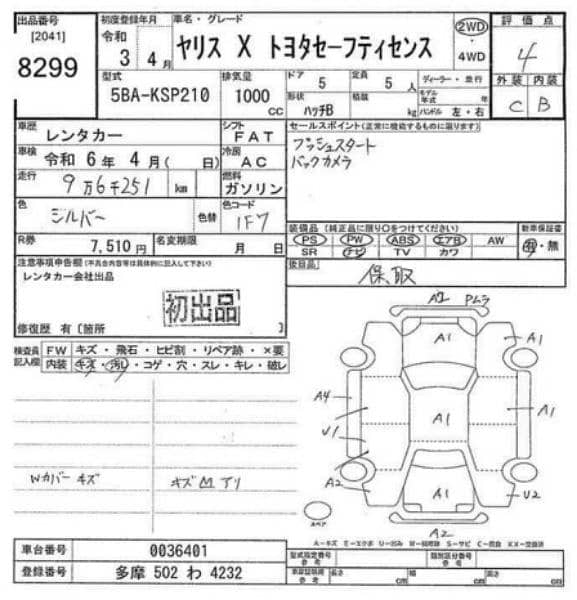 出品番号
[2041]
8299
初度登録年月
令和
3 4月
車名・グレード
ヤリス X トヨタセーフティセンス
2WD
・
4WD
評価点
4
外装 内装
C B
型式
5BA-KSP210
排気量
1000
CC
ドア
5
定員
5 人
ディーラー・並行
形状
ハッチB
積載
kg
モデル年式
年
ハンドル 左・右
車歴
レンタカー
シフト
FAT
車検
令和 6年 4月( 日)
冷房
AC
走行
9万6千251 km
燃料
ガソリン
色
シルバー
色替
色コード
1F7
R券
7,510 円
名変期限
月 日
セールスポイント(正常に機能するものに限ります)
プッシュスタート
バックカメラ
装備品(純正品に限り○をつけてください)
PS PW ABS エアB AW
SR ナビ TV カワ
新車保証書
有・無
後日品
保取
注意事項申告欄(不具合内容等は具体的に記入して下さい)
レンタカー会社出品
初出品
修復歴 有〔箇所 〕
検査員記入欄
FW キズ・飛石・ヒビ割・リペア跡・×要
内装 キズ・汚れ・コゲ・穴・スレ・キレ・破レ
Wカバーキズ
A2 Pムラ
A1
A1
A4
A1
A1
U1
A2
A1
U2
A2
スペア
A-キズ E-エクボ U-凹み W-補修跡 S-サビ C-腐食 XX-交換済
車台番号
0036401
登録番号
多摩 502 わ 4232
型式指定番号
参考
類別区分番号
参考
車両寸法
参考
長さ
cm
幅
cm
高さ
cm